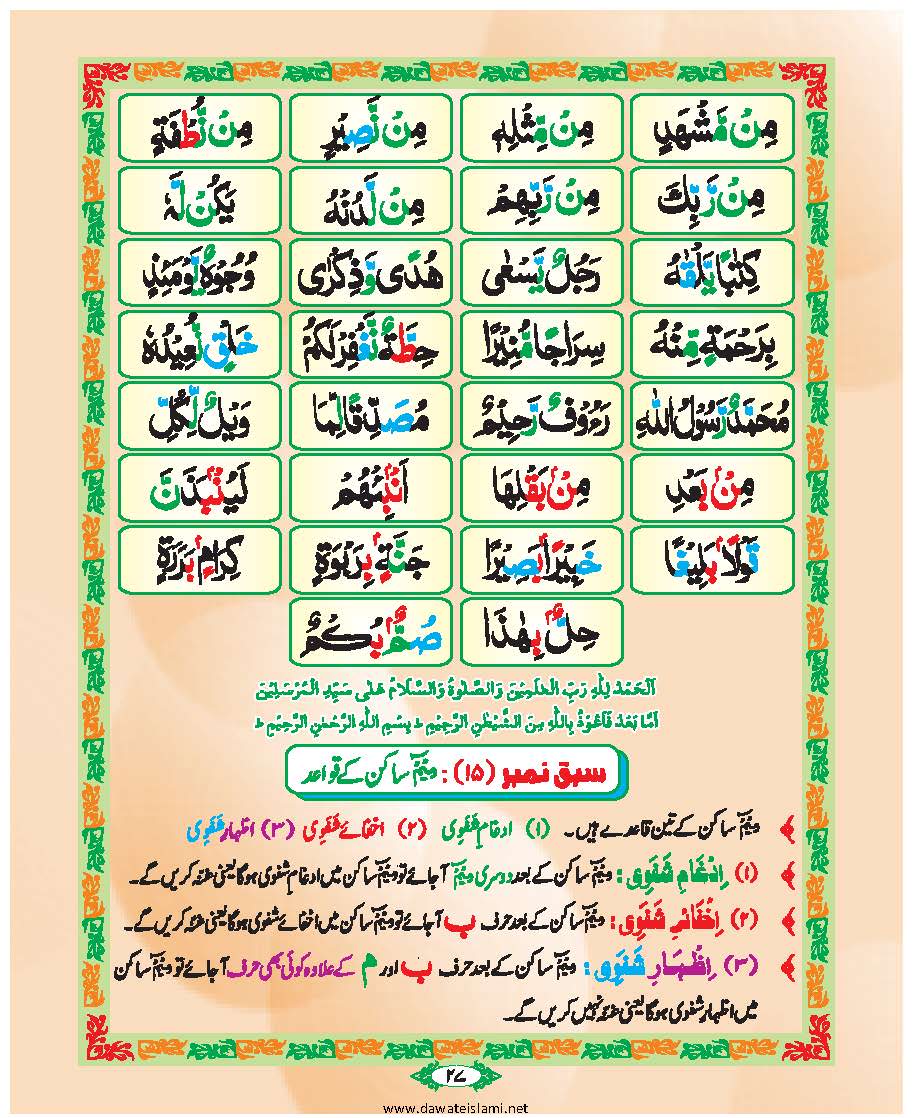 مِنْ مَّشْهَدِ مِنْ مِّثْلِهٖ مِنْ نَّصِيْرٍ مِنْ نُّطْفَةٍ
مِنْ رَّبِّكَ مِنْ رَّبِّهِمْ مِنْ لَّدُنْهُ يَكُنْ لَّهٗ
كِتٰبًا يَّلْقٰىهُ رَجُلٌ يَّسْعٰى هُدًى وَّذِكْرٰى وُجُوْهٌ يَّوْمَئِذٍ
بِرَحْمَةٍ مِّنْهُ سِرَاجًا مُّنِيْرًا حِطَّةٌ نَّغْفِرْ لَكُمْ خَلْقٍ نُّعِيْدُهٗ
مُحَمَّدٌ رَّسُوْلُ اللّٰهِ رَءُوْفٌ رَّحِيْمٌ مُصَدِّقًا لِّمَا وَيْلٌ لِّكُلِّ
مِنْۢ بَعْدِ مِنْۢ بَقْلِهَا اَنْۢبِئْهُمْ لَيُنْۢبَذَنَّ
قَوْلًاۢ بَلِيْغًا خَبِيْرًاۢ بَصِيْرًا جَنَّةٍۭ بِرَبْوَةٍ كِرَامٍۭ بَرَرَةٍ
حِلٌّۢ بِهٰذَا صُمٌّۢ بُكْمٌ
اَلْحَمْدُ لِلّٰهِ رَبِّ الْعٰلَمِيْنَ وَالصَّلٰوةُ وَالسَّلَامُ عَلٰى سَيِّدِ الْمُرْسَلِيْنَ
اَمَّا بَعْدُ فَاَعُوْذُ بِاللّٰهِ مِنَ الشَّيْطٰنِ الرَّجِيْمِ ؕ بِسْمِ اللّٰهِ الرَّحْمٰنِ الرَّحِيْمِ ؕ
سبق نمبر (۱۵) : میم ساکن کے قواعد
میم ساکن کے تین قاعدے ہیں۔ (۱) ادغامِ شَفَوِی (۲) اخفائے شَفَوِی (۳) اظہارِ شَفَوِی
(۱) اِدْغَامِ شَفَوِی : میم ساکن کے بعد دوسری میم آجائے تو میم ساکن میں ادغامِ شفوی ہوگا یعنی غنّہ کریں گے۔
(۲) اِخْفَائے شَفَوِی : میم ساکن کے بعد حرف ب آجائے تو میم ساکن میں اخفائے شفوی ہوگا یعنی غنّہ کریں گے۔
(۳) اِظْہَارِ شَفَوِی : میم ساکن کے بعد حرف ب اور م کے علاوہ کوئی بھی حرف آجائے تو میم ساکن
میں اظہارِ شفوی ہوگا یعنی غنّہ نہیں کریں گے۔
۲۷
www.dawateislami.net